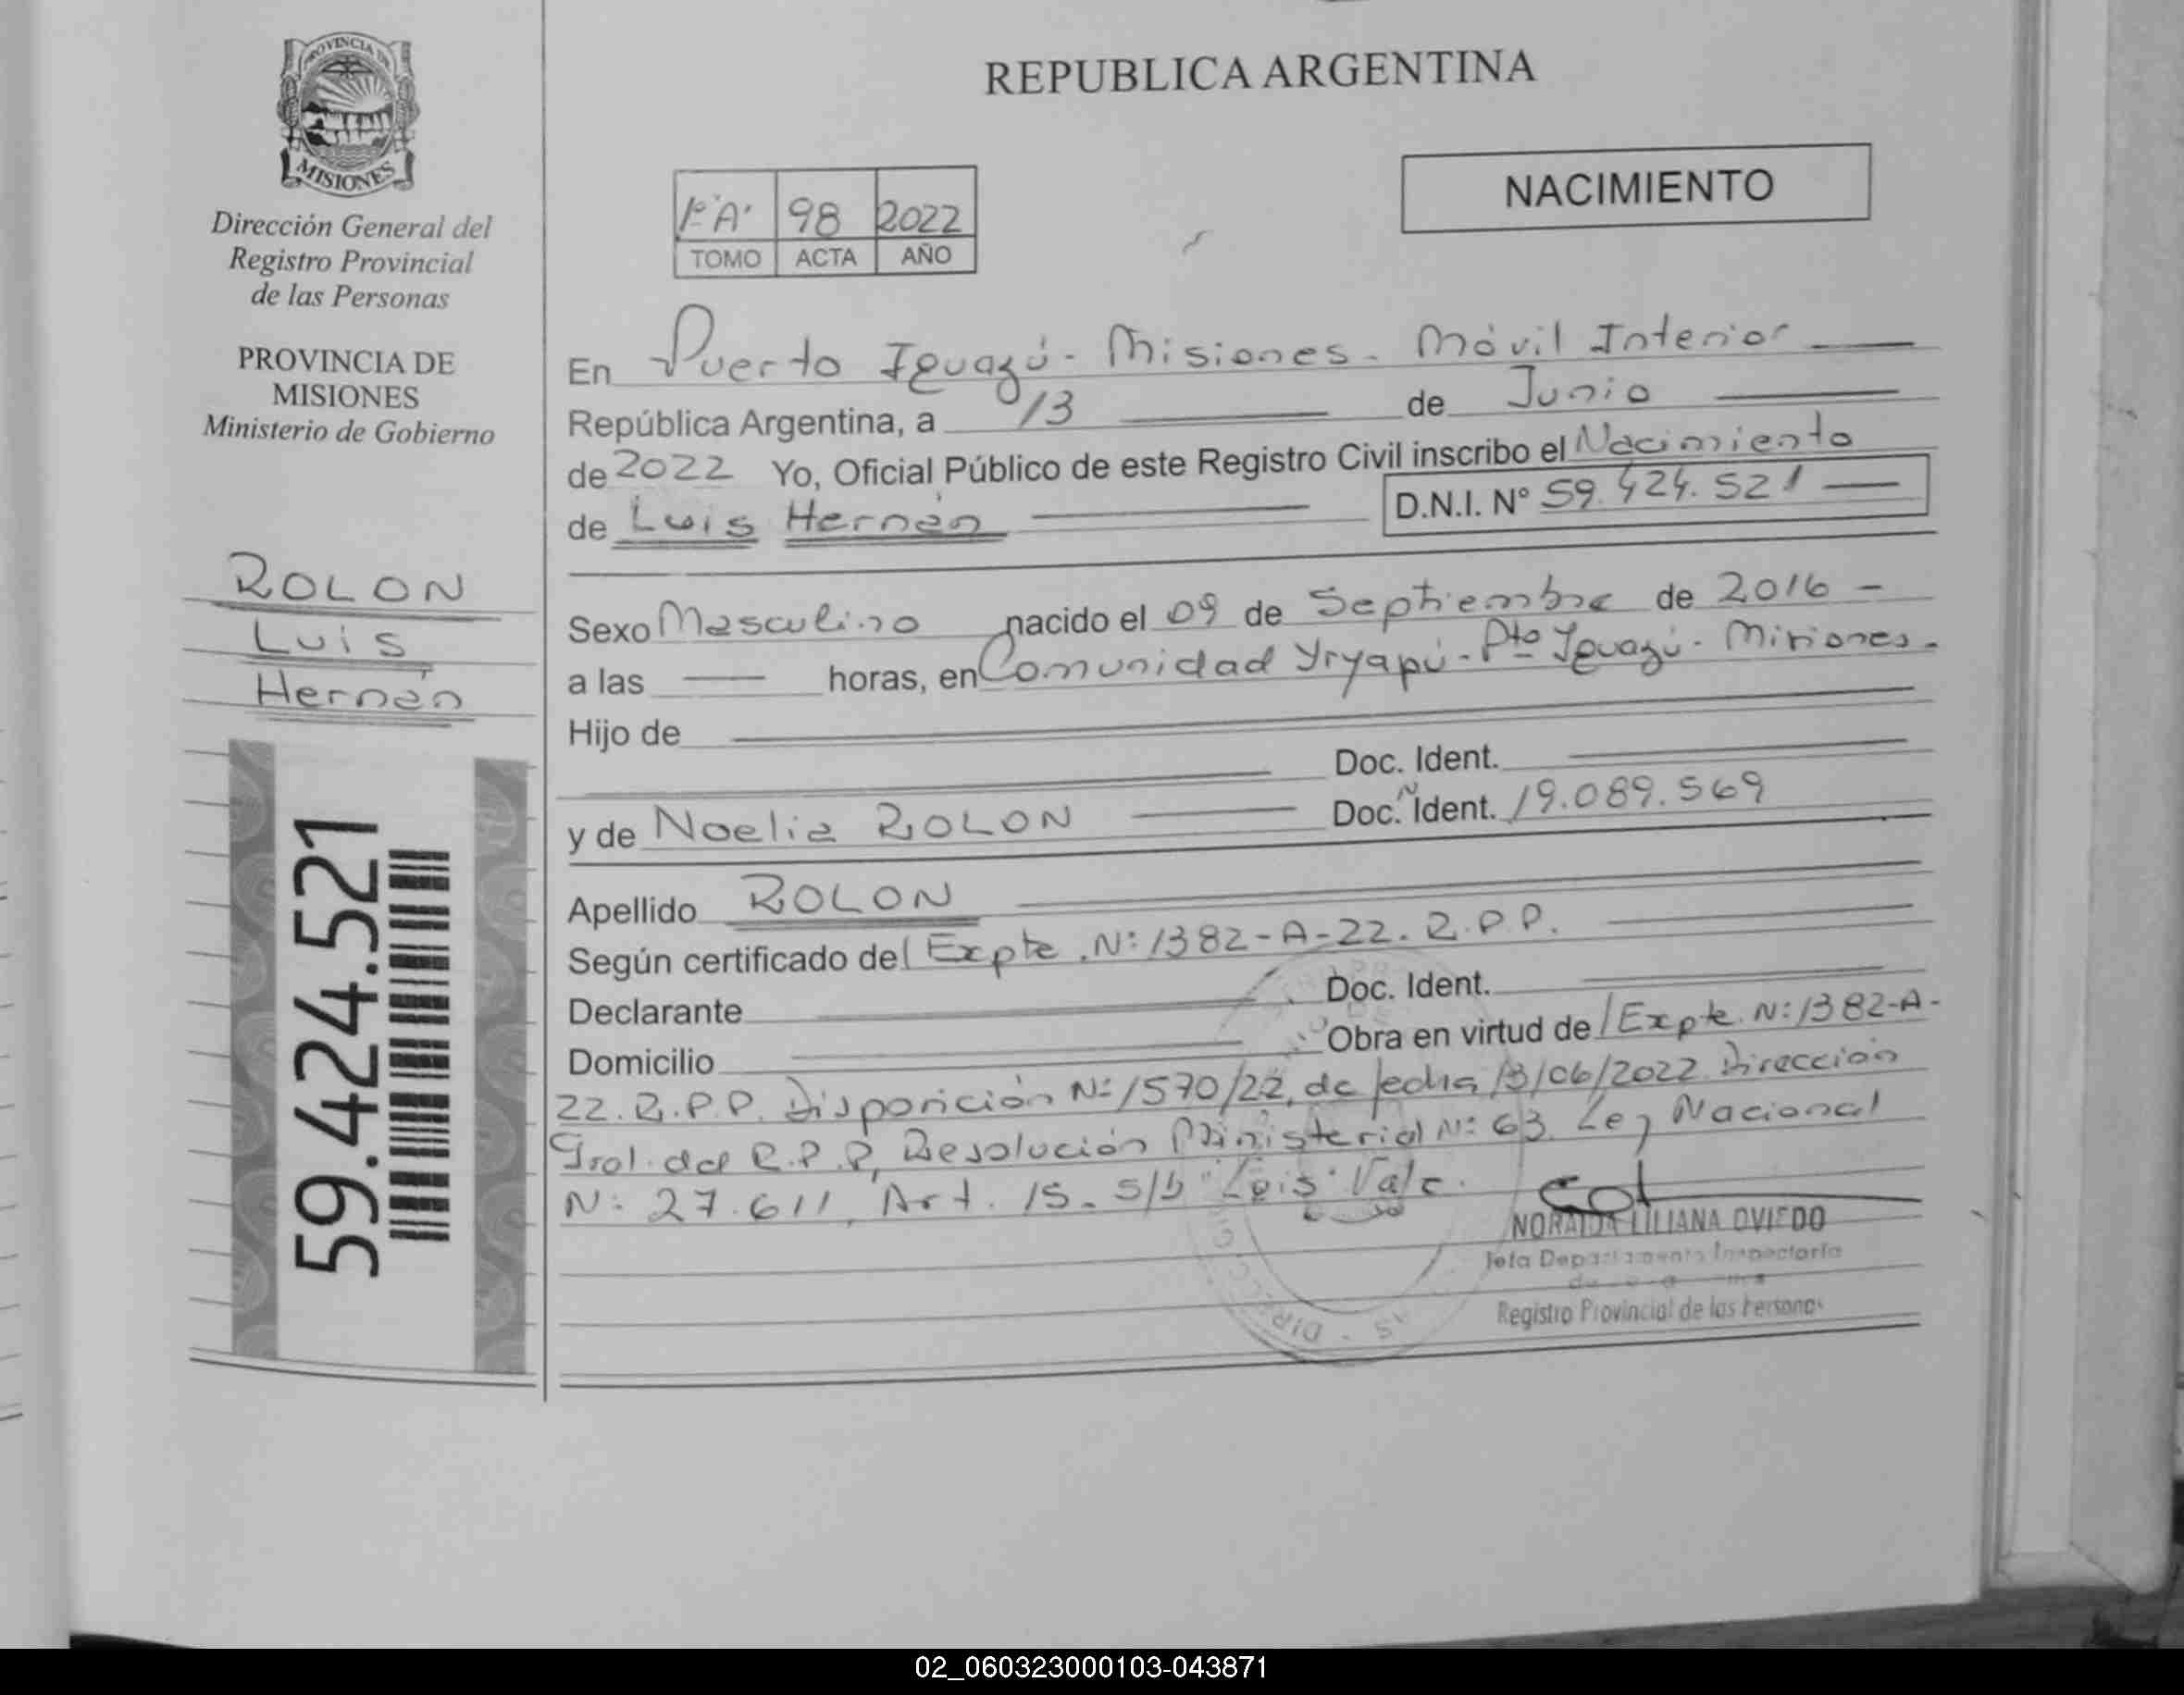 PROVINCIA DE
MISIONES
Dirección General del
Registro Provincial
de las Personas
PROVINCIA DE
MISIONES
Ministerio de Gobierno
ROLON
Luis
Hernán
59.424.521
REPUBLICA ARGENTINA
NACIMIENTO
1º"A" 98 2022
TOMO ACTA AÑO
En Puerto Iguazú - Misiones - Móvil Interior
República Argentina, a 13 de Junio
de 2022 Yo, Oficial Público de este Registro Civil inscribo el Nacimiento
de Luis Hernán D.N.I. Nº 59.424.521
Sexo Masculino nacido el 09 de Septiembre de 2016 -
a las horas, en Comunidad Yryapú - Pto Iguazú - Misiones -
Hijo de
Doc. Ident.
y de Noelia ROLON Doc. Ident. 19.089.569
Apellido ROLON
Según certificado del Expte. Nº 1382-A-22. R.P.P.
Declarante Doc. Ident.
Domicilio Obra en virtud del Expte. Nº 1382-A-
22. R.P.P. Disposición Nº 1570/22, de fecha 13/06/2022 Dirección
Gral. del R.P.P, Resolución Ministerial Nº 63. Ley Nacional
Nº 27.611, Art. 15. S/b "Luis" Vale.
NORAIDA LILIANA OVIEDO
Jefa Departamento Inspectoría
Registro Provincial de las Personas
02_060323000103-043871